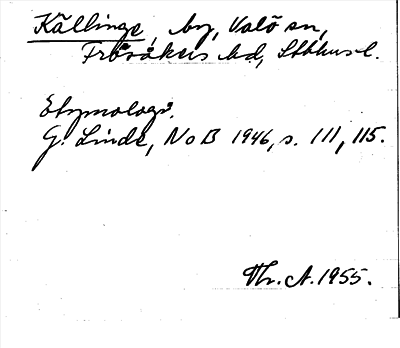 Källinge, by, Valö sn,
Frösåkers hd, Sthlms l.
Etymologi.
G. Linde, NoB 1946, s. 111, 115.
A. 1955.